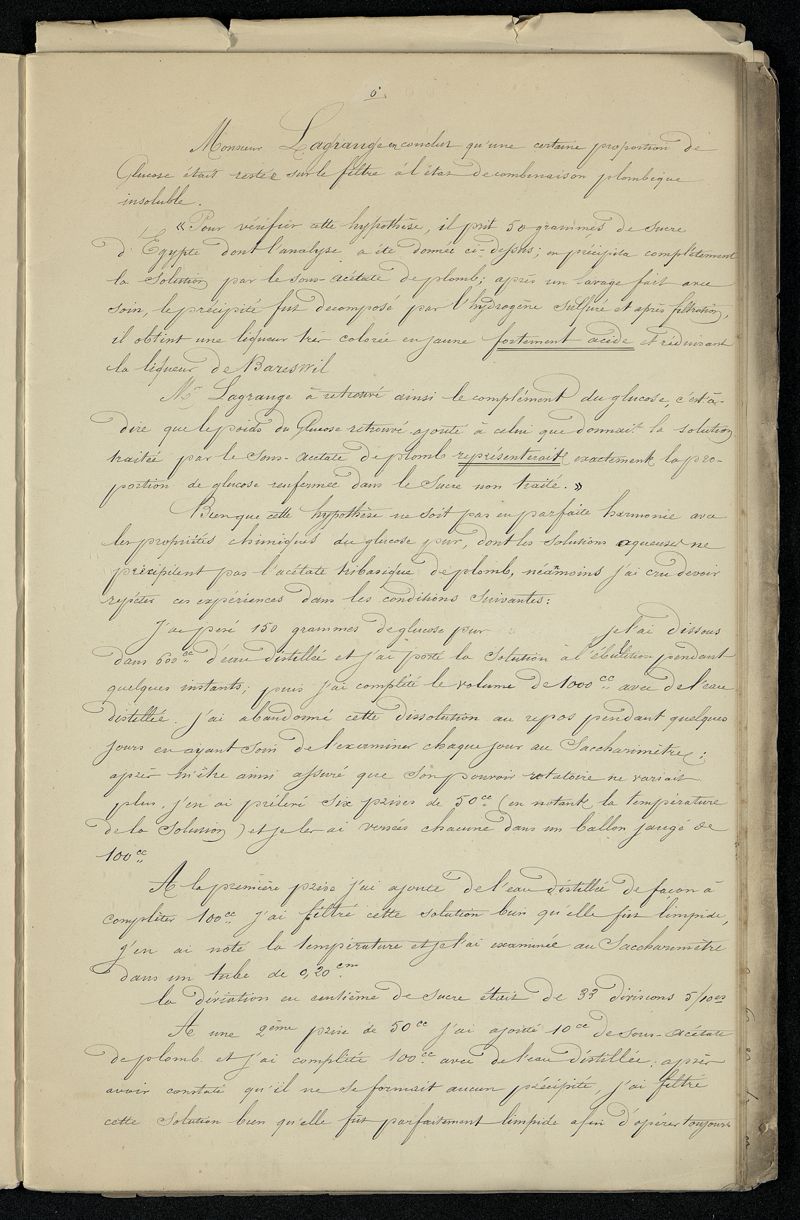 6.
Monsieur Lagrange en conclut qu'une certaine proportion de
Glucose était restée sur le filtre à l'état de combinaison plombique
insoluble.
« Pour vérifier cette hypothèse, il prit 50 grammes de sucre
d'Égypte dont l'analyse a été donnée ci-dessus; en précipita complètement
la solution par le sous-acétate de plomb; après un lavage fait avec
soin, le précipité fut décomposé par l'hydrogène sulfuré et après filtration,
il obtint une liqueur très colorée en jaune fortement acide et réduisant
la liqueur de Bareswil
Mr Lagrange à retrouvé ainsi le complément du glucose, c'est à-
dire que le poids du Glucose retrouvé ajouté à celui que donnait la solution
traitée par le Sous-acétate de plomb représenterait exactement la pro-
portion de glucose renfermée dans le Sucre non traité. »
Bien que cette hypothèse ne soit pas en parfaite harmonie avec
les propriétés chimiques du glucose pur, dont les solutions aqueuses ne
précipitent pas l'acétate tribasique de plomb, néanmoins j'ai cru devoir
répéter ces expériences dans les conditions suivantes:
J'ai pesé 150 grammes de glucose pur je l'ai dissous
dans 600cc d'eau distillée et j'ai porté la solution à l'ébulition pendant
quelques instants; puis j'ai complété le volume de 1000cc avec de l'eau
distillée. j'ai abandonné cette dissolution au repos pendant quelques
jours en ayant soin de l'examiner chaque jour au Saccharimètre;
après m'être ainsi assuré que son pouvoir rotatoire ne variait
plus, j'en ai prélevé six prises de 50cc (en notant la température
de la solution) et je les ai versées chacune dans un ballon jaugé de
100cc
A la première prise j'ai ajouté de l'eau distillée de façon à
compléter 100cc j'ai filtré cette solution bien qu'elle fut limpide,
j'en ai noté la température et je l'ai examinée au Saccharimètre
dans un tube de 0,20cm
la déviation en centième de sucre était de 33 divisions 5/10es
A une 2ème prise de 50cc j'ai ajouté 10cc de sous-acétate
de plomb et j'ai complété 100cc avec de l'eau distillée; après
avoir constaté qu'il ne se formait aucun précipité, j'ai filtré
cette solution bien qu'elle fût parfaitement limpide afin d'opérer toujours